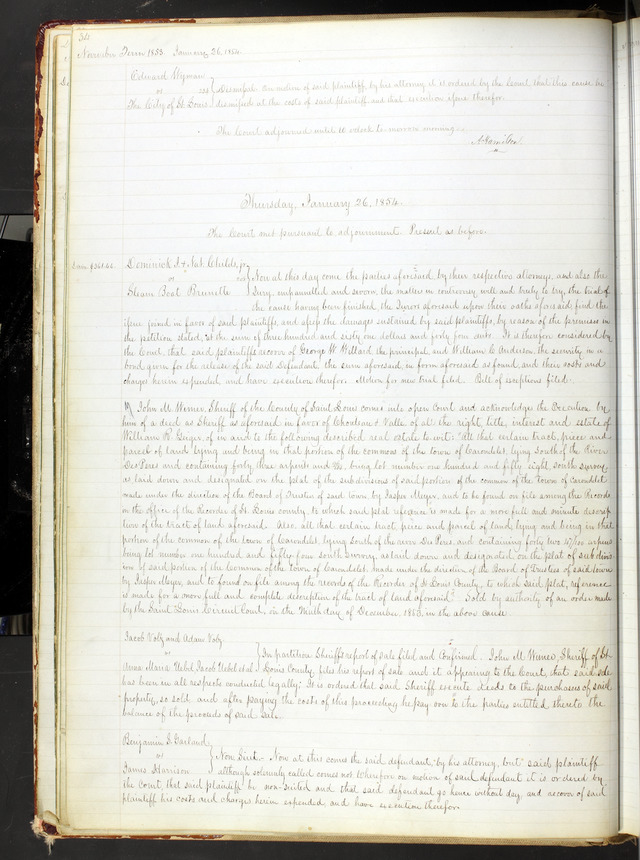 34
November Term 1853. January 26, 1854.
Edward Wyman
vs
The City of St Louis
Dismissed. On motion of said plaintiff, by his attorney it is ordered by the Court that this cause be
dismissed at the costs of said plaintiff and that execution issue therefor.
The Court adjourned until 10 oclock to morrow morning.
A Hamilton
Thursday, January 26, 1854.
The Court met pursuant to adjournment. Present as before.
$361.44
Dominick J. & Nat. Childs, jr
vs
Steam Boat Brunette
Now at this day come the parties aforesaid, by their respective attorneys, and also the
Jury, empannelled and sworn, the matters in controversy well and truly to try, the trial of
the cause having been finished, the Jurors aforesaid upon their oaths aforesaid find the
issue joined in favor of said plaintiffs, and assess the damages sustained by said plaintiffs, by reason of the premises in
the petition stated, at the sum of three hundred and sixty one dollars and forty four cents. It is therefore considered by
the Court, that said plaintiffs recover of George W. Willard the principal, and William C. Anderson, the security in a
bond given for the release of the said Defendant the sum aforesaid, in form aforesaid as found, and their costs and
charges herein expended, and have execution therefor. Motion for new trial filed. Bill of exceptions filed.
John M. Wimer, Sheriff of the County of Saint Louis comes into open Court and acknowledges the Execution by
him of a deed as Sheriff as aforesaid in favor of Chouteau & Valle of all the right, title, interest and estate of
William R. Singer, of in and to the following described real estate to wit: "All that certain tract, piece and
parcel of land lying and being in that portion of the commons of the town of Carondelet, lying south of the River
Des Peres and containing forty three arpents and, being lot number one hundred and fifty eight, south survey
as laid down and designated on the plat of the subdivisions of said portion of the common of the town of Carondelet
made under the direction of the Board of Trustees of said town, by Jasper Meyer, and to be found on file among the Records
in the office of the Recorder of St Louis county, to which said plat reference is made for a more full and minute descrip
tion of the tract of land aforesaid. Also, all that certain tract piece and parcel of land, lying and being in that
portion of the common of the town of Carondelet, lying south of the river Des Peres, and containing forty two 47/100 arpens
being lot number one hundred and fifty four south survey, as laid down and designated on the plat of subdivi
sion of said portion of the Commons of the town of Carondelet, made under the direction of the Board of Trustees of said town
by Jasper Meyer, and to found on file among the records of the Recorder of St Louis County, to which said plat, reference
is made for a more full and complete description of the tract of land aforesaid." Sold by authority of an order made
by the Saint Louis Circuit Court, on the Ninth day of December, 1853, in the above cause.
Jacob Volz and Adam Volz
vs
Anna Maria Uebel, Jacob Uebel et al
In partition. Sheriffs report of sale filed and Confirmed. John M. Wimer, Sheriff of St
Louis County, files his report of sale and it appearing to the Court, that said sale
has been in all respects conducted legally; It is ordered that said Sheriff execute deeds to the purchasers of said
property, so sold and after paying the costs of this proceeding he pay over to the parties entitled thereto the
balance of the proceeds of said sale.
Benjamin S. Garland
vs
James Harrison
Non Suit. Now at this comes the said defendant, by his attorney, but said plaintiff
although solemnly called comes not. Wherefore on motion of said defendant it is ordered by
the Court, that said plaintiff be non-suited and that said defendant go hence without day, and recover of said
plaintiff his costs and charges herein expended, and have execution therefor.